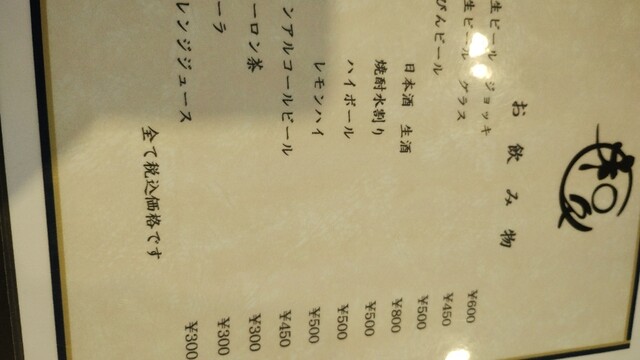 お飲み物
生ビール ジョッキ ¥600
生ビール グラス ¥450
びんビール ¥500
日本酒 生酒 ¥800
焼酎水割り ¥500
ハイボール ¥500
レモンハイ ¥500
ンアルコールビール ¥450
ーロン茶 ¥300
ーラ ¥300
レンジジュース ¥300
全て税込価格です